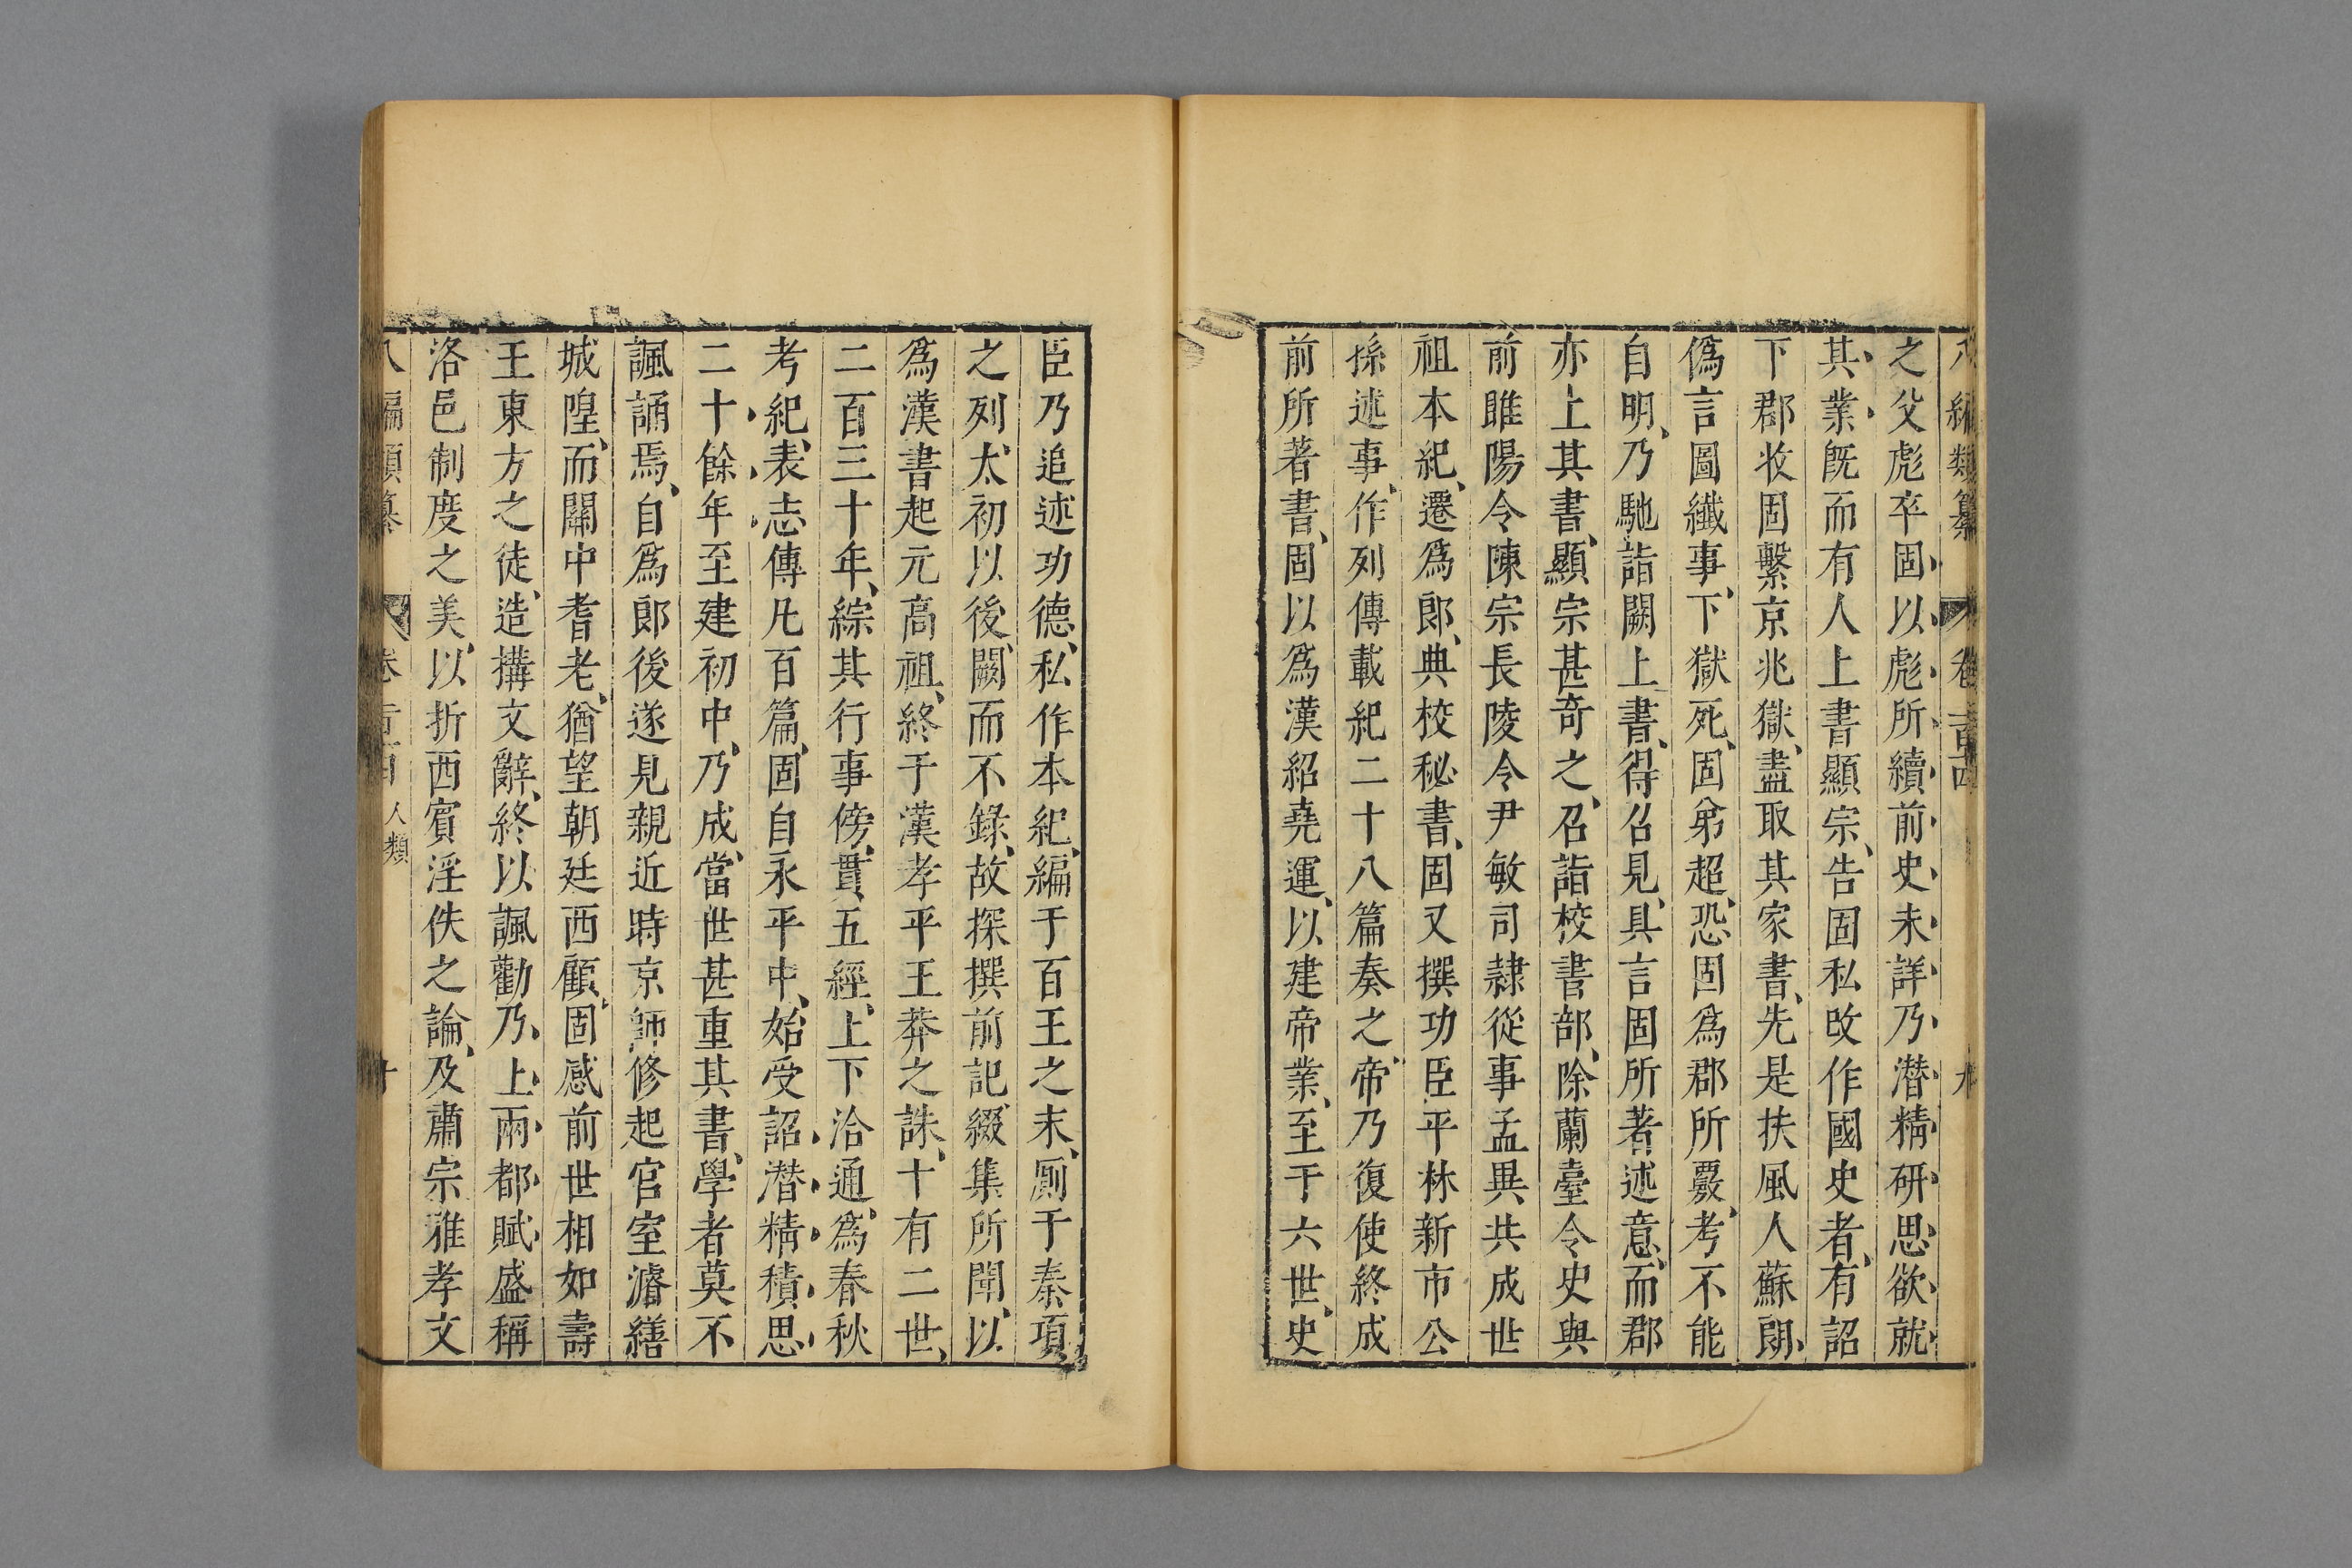 八編類纂 卷 九
之父彪卒固以彪所續前史未詳乃潛精研思欲就
其業旣而有人上書顯宗告固私改作國史者有詔
下郡收固繫京兆獄盡取其家書先是扶風人蘇朗
僞言圖纖事下獄死固弟超恐固爲郡所覈考不能
自明乃馳詣闕上書得召見具言固所著述意而郡
亦上其書顯宗甚奇之召詣校書部除蘭臺令史與
前睢陽令陳宗長陵令尹敏司隷從事孟異共成世
祖本紀遷爲郎典校秘書固又撰功臣平林新市公
孫述事作列傳載紀二十八篇奏之帝乃復使終成
前所著書固以爲漢紹堯運以建帝業至于六世史
臣乃追述功德私作本紀編于百王之末厠于秦項
之列太初以後闕而不錄故探撰前記綴集所聞以
爲漢書起元高祖終于漢孝平王莽之誅十有二世
二百三十年綜其行事傍貫五經上下洽通爲春秋
考紀表志傳凡百篇固自永平中始受詔潛精積思
二十餘年至建初中乃成當世甚重其書學者莫不
諷誦焉自爲郎後遂見親近時京師修起宮室濬繕
城隍而關中耆老猶望朝廷西顧固感前世相如壽
王東方之徒造搆文辭終以諷勸乃上兩都賦盛稱
洛邑制度之美以折西賓淫佚之論及肅宗雅孝文
八編類纂 卷 人類 十